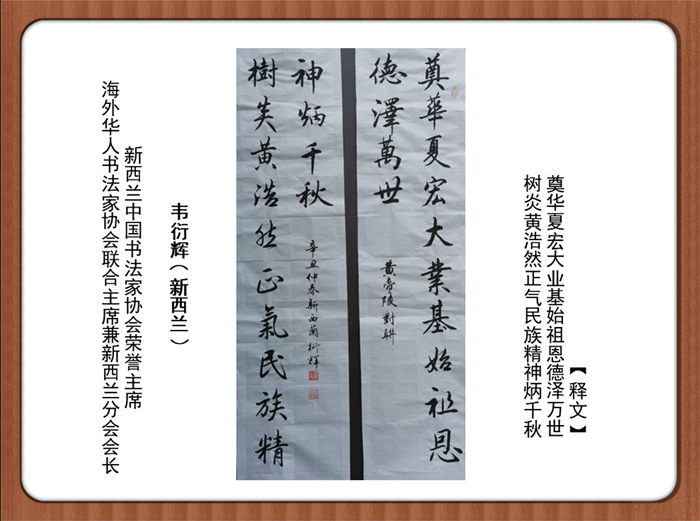 【释文】
奠华夏宏大业基始祖恩德泽万世
树炎黄浩然正气民族精神炳千秋
奠華夏宏大業基始祖恩
德澤萬世
黄帝陵對聯
樹炎黄浩然正氣民族精
神炳千秋
辛丑仲春新西蘭衍輝
韦衍辉（新西兰）
新西兰中国书法家协会荣誉主席
海外华人书法家协会联合主席兼新西兰分会会长